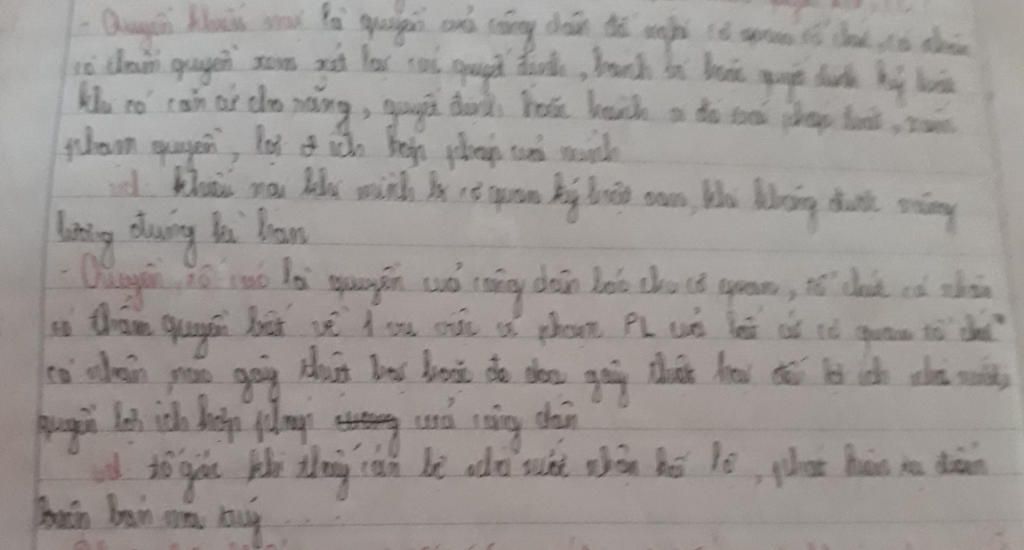 - Quyền khiếu nại là quyền của công dân đề nghị cơ quan tổ chức, cá nhân
có thẩm quyền xem xét lại các quyết định, hành vi hoặc quyết định kỷ luật
khi có căn cứ cho rằng, quyết định hoặc hành vi đó trái pháp luật, xâm
phạm quyền, lợi ích hợp pháp của mình
vd khiếu nại khi mình bị cơ quan kỷ luật oan, khi không được nâng
lương đúng kì hạn
- Quyền tố cáo là quyền của công dân báo cho cơ quan, tổ chức cá nhân
có thẩm quyền biết về 1 vụ việc vi phạm PL của bất cứ cơ quan tổ chức
cá nhân nào gây thiệt hại hoặc đe dọa gây thiệt hại đến lợi ích nhà nước,
quyền lợi ích hợp pháp của công dân
vd tố giác khi thấy cán bộ nhà nước nhận hối lộ, phát hiện ra
buôn bán ma túy